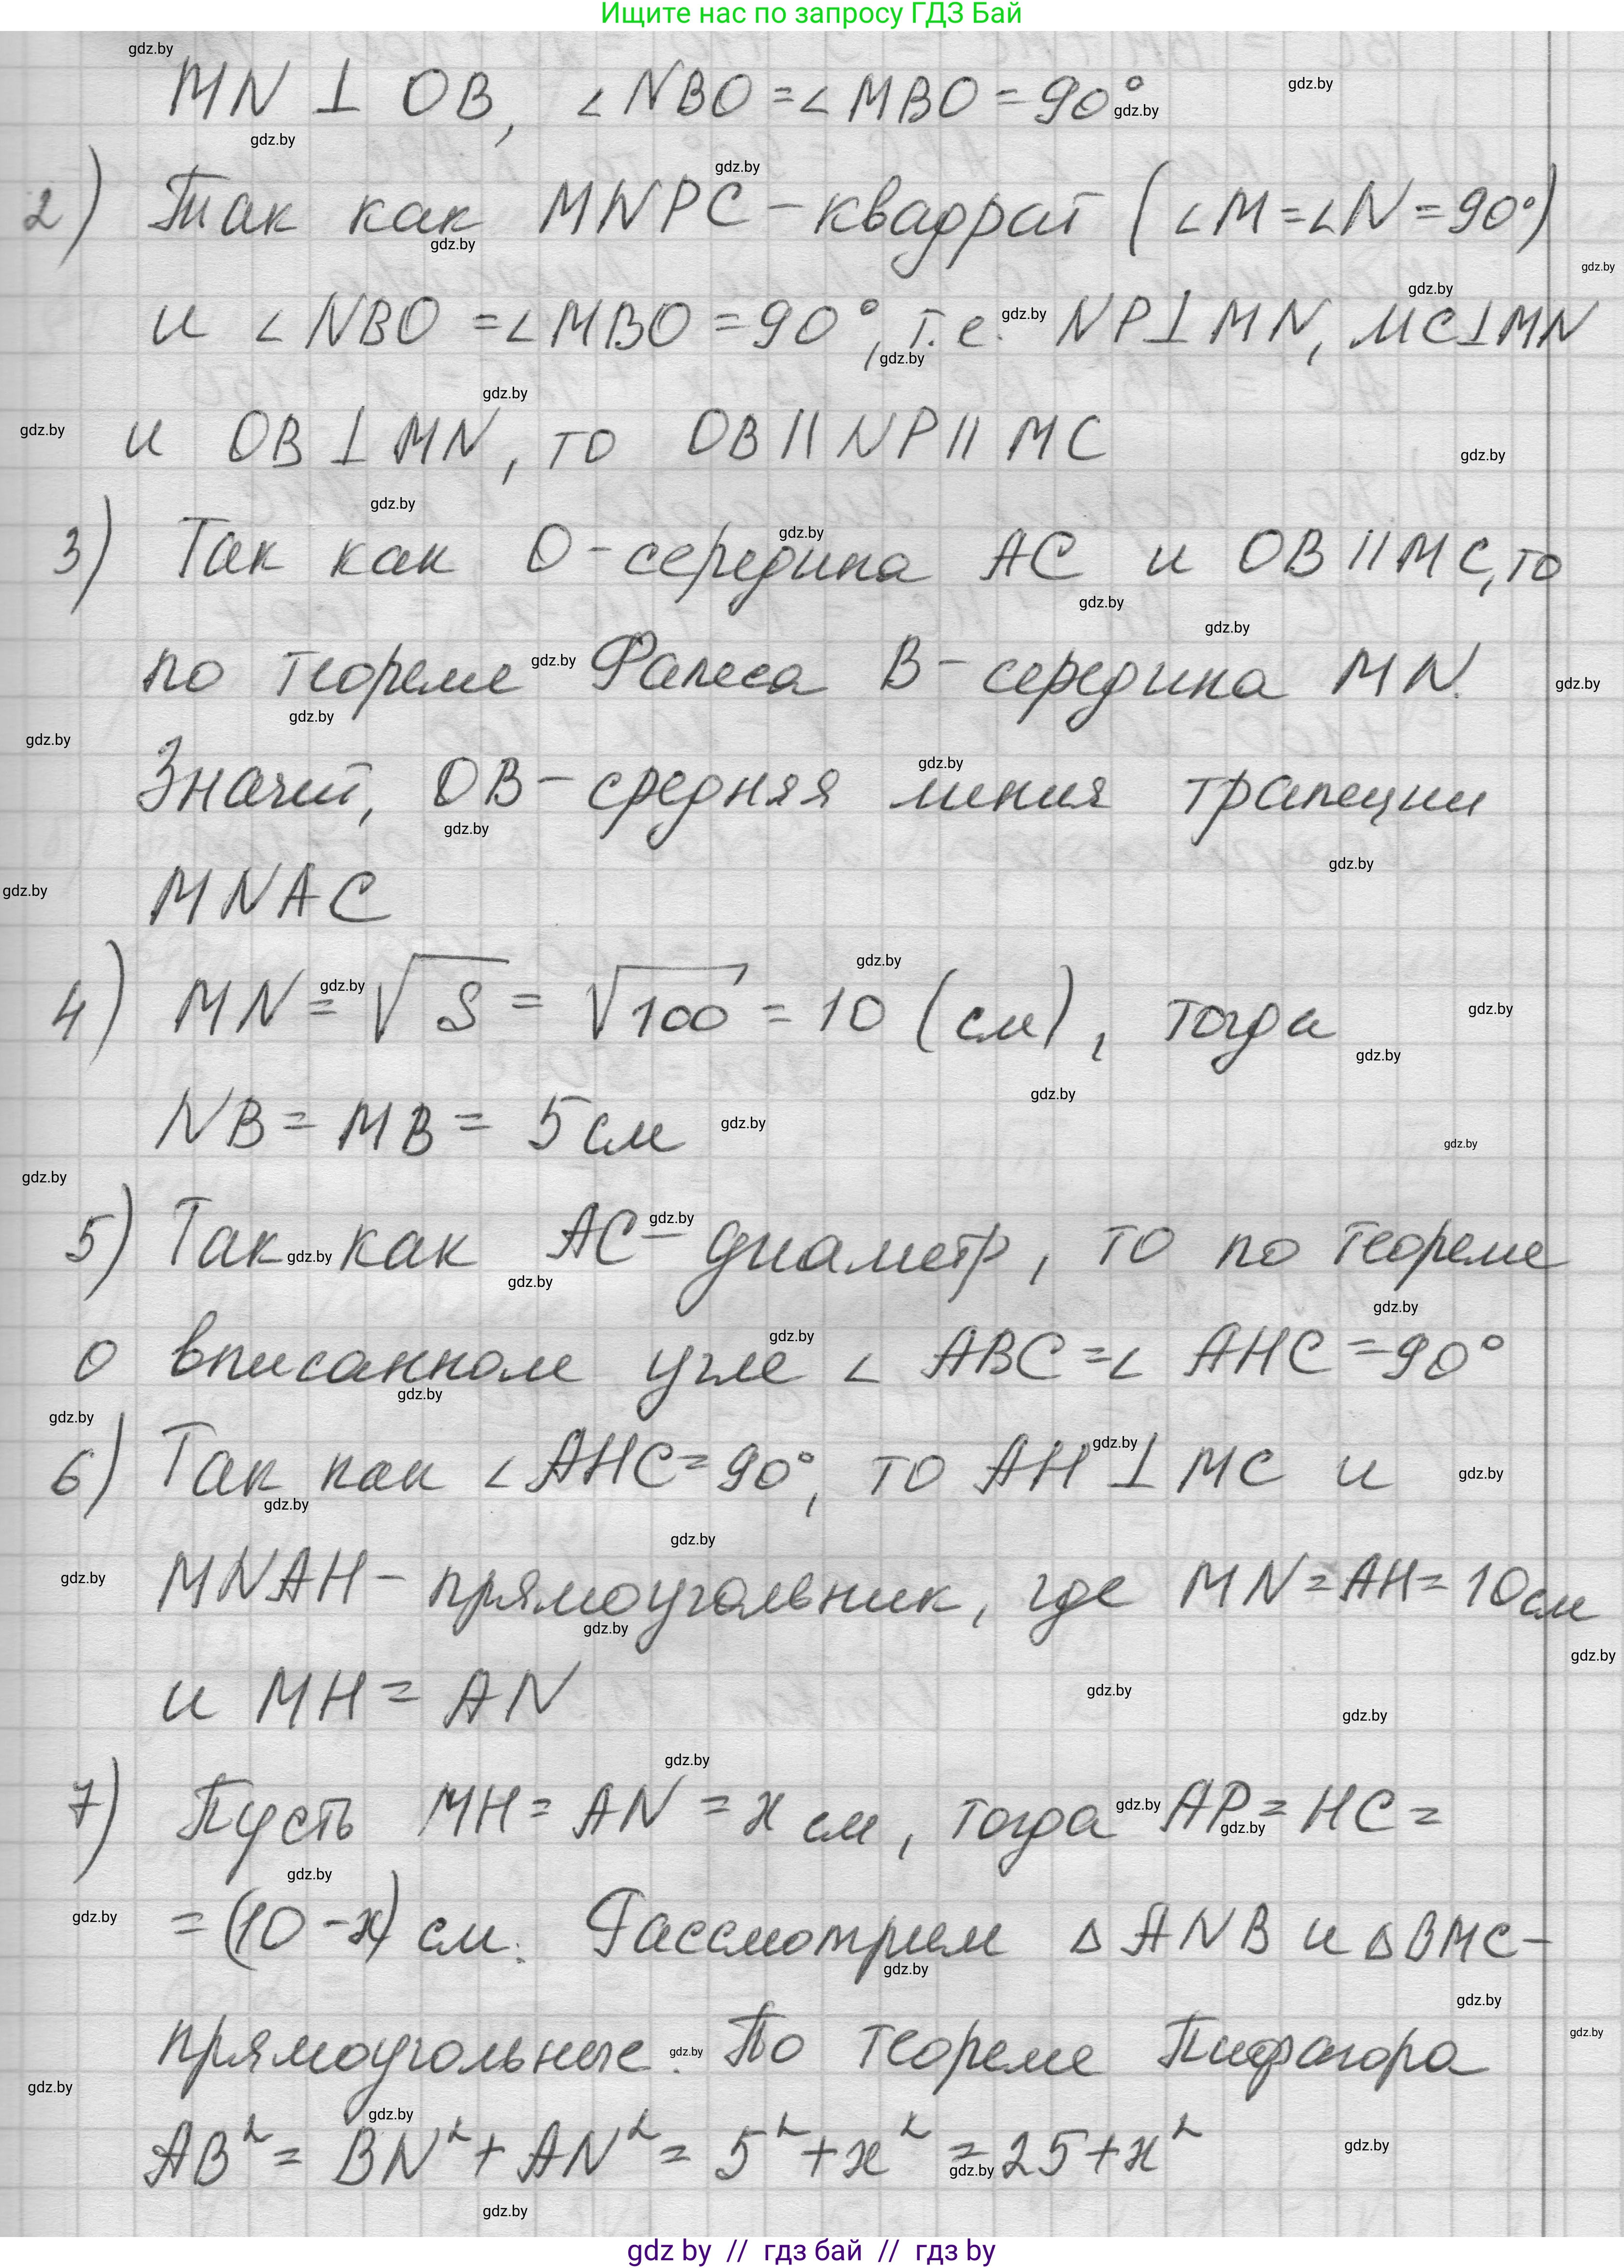 Ищите нас по запросу ГДЗ Бай
MN ⊥ OB, ∠NBO = ∠MBO = 90°
2) Так как MNPC - квадрат (∠M = ∠N = 90°)
и ∠NBO = ∠MBO = 90°, т.е. NP ⊥ MN, MC ⊥ MN
и OB ⊥ MN, то OB || NP || MC
3) Так как O - середина AC и OB || MC, то
по теореме Фалеса B - середина MN.
Значит, OB - средняя линия трапеции
MNAC
4) MN = √S = √100 = 10 (см), тогда
NB = MB = 5 см
5) Так как AC - диаметр, то по теореме
о вписанном угле ∠ABC = ∠AHC = 90°
6) Так как ∠AHC = 90°, то AH ⊥ MC и
MNAH - прямоугольник, где MN = AH = 10 см
и MH = AN
7) Пусть MH = AN = x см, тогда AP = HC =
= (10 - x) см. Рассмотрим △ANB и △BMC -
прямоугольные. По теореме Пифагора
AB² = BN² + AN² = 5² + x² = 25 + x²
gdz by // гдз бай // гдз by